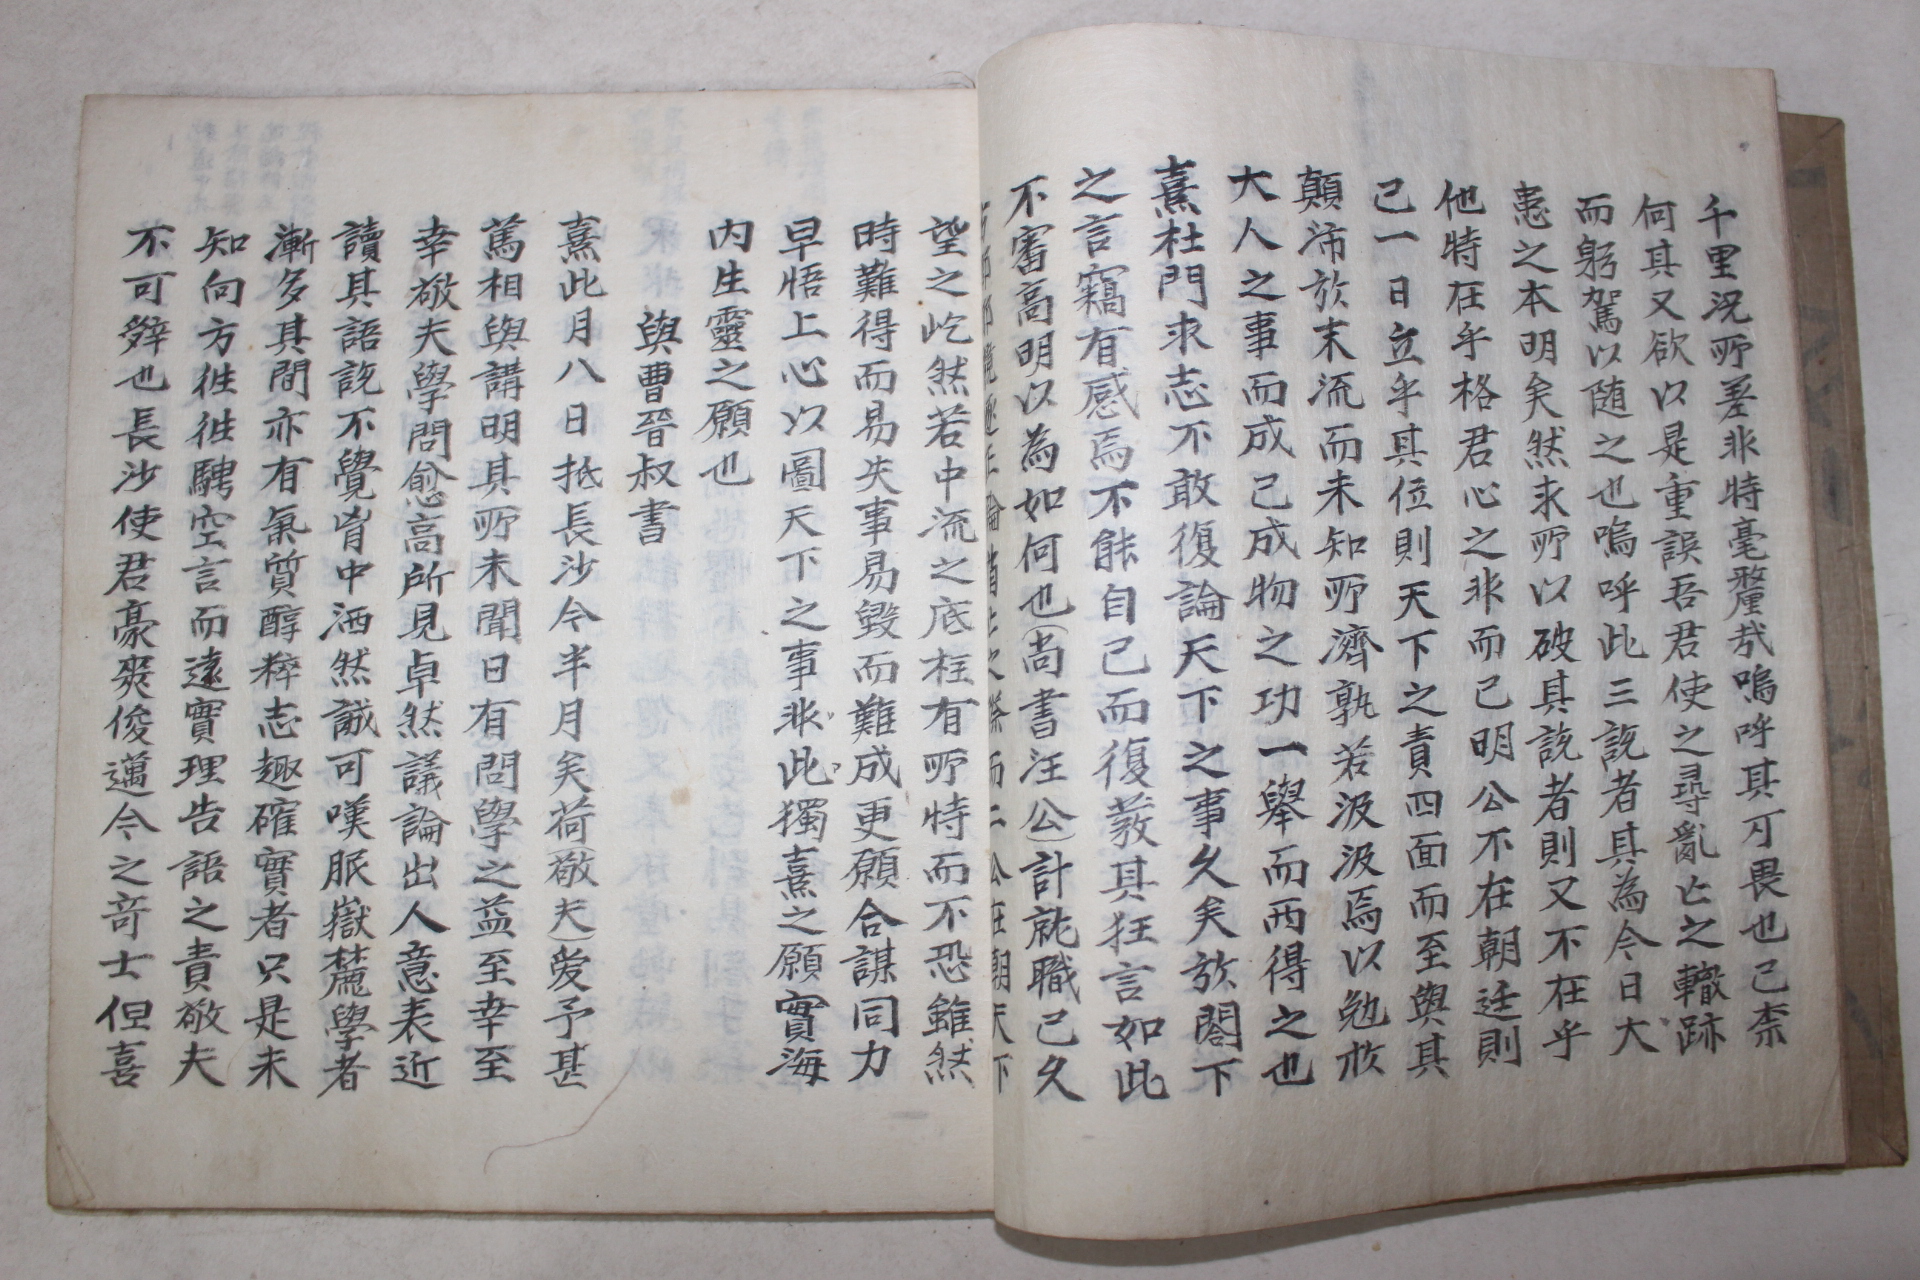 千里況所差非特毫釐哉嗚呼其可畏也已柰
何其又欲以是重誤吾君使之尋亂亡之轍跡
而躬駕以随之也嗚呼此三說者其為今日大
患之本明矣然求所以破其說者則又不在乎
他特在乎格君心之非而已明公不在朝廷則
已一日立乎其位則天下之責四面而至與其
顛沛於末流而未知所濟孰若汲汲焉以勉於
大人之事而成己成物之功一擧而兩得之也
熹杜門求志不敢復論天下之事久矣於閤下
之言竊有感焉不能自已而復效其狂言如此
不審高明以為如何也(尚書汪公)計就職已久
望之屹然若中流之底柱有所恃而不恐雖然
時難得而易失事易毀而難成更願合謀同力
早悟上心以圖天下之事非此獨熹之願實海
內生靈之願也
與曹晉叔書
熹此月八日抵長沙今半月矣荷(敬夫)爱予甚
篤相與講明其所未聞日有問學之益至幸至
幸敬夫學問愈高所見卓然議論出人意表近
讀其語說不覺胷中洒然誠可嘆服嶽麓學者
漸多其間亦有氣質醇粹志趣確實者只是未
知向方往往騁空言而遠實理告語之責敬夫
不可辤也長沙使君豪爽俊邁今之竒士但喜